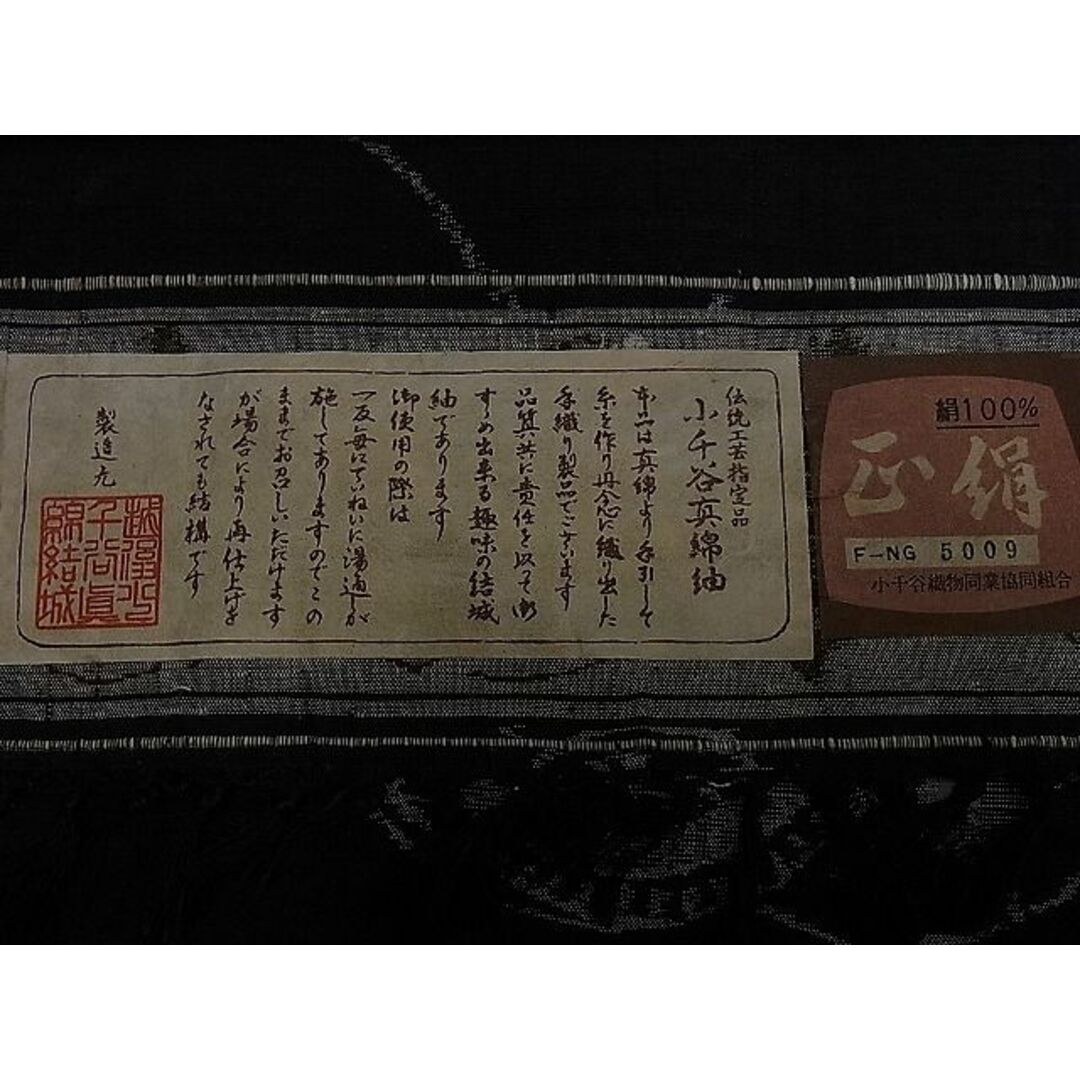 伝統工芸指定品
小千谷真綿紬
本品は真綿より手引して
糸を作り丹念に織り出した
手織り製品でございます
品質共に責任を以て御
すゝめ出来る趣味の結城
紬であります
御使用の際は
一反毎にていねいに湯通しが
施してありますのでこの
ままでお召しいただけます
が場合により再仕上げを
なされても結構です
製造元
千谷眞
綿結城
絹100%
正絹
F-NG 5009
小千谷織物同業協同組合